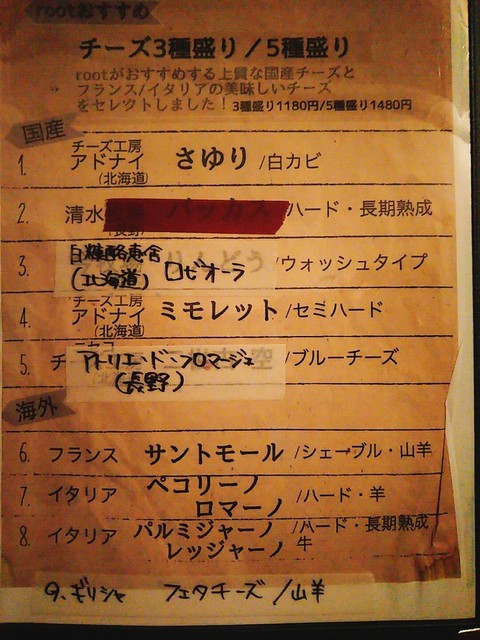 rootおすすめ
チーズ3種盛り／5種盛り
rootがおすすめする上質な国産チーズと
フランス/イタリアの美味しいチーズ
をセレクトしました！3種盛り1180円/5種盛り1480円
国産
1. チーズ工房
アドナイ さゆり /白カビ
(北海道)
2. 清水 バッカス /ハード・長期熟成
3. 白糠酪恵舎
(北海道) ロビオーラ /ウォッシュタイプ
4. チーズ工房
アドナイ ミモレット /セミハード
(北海道)
5. チ アトリエ・ド・フロマージュ /ブルーチーズ
(長野)
海外
6. フランス サントモール /シェーブル・山羊
7. イタリア ペコリーノ
ロマーノ /ハード・羊
8. イタリア パルミジャーノ /ハード・長期熟成
レッジャーノ 牛
9. ギリシャ フェタチーズ /山羊